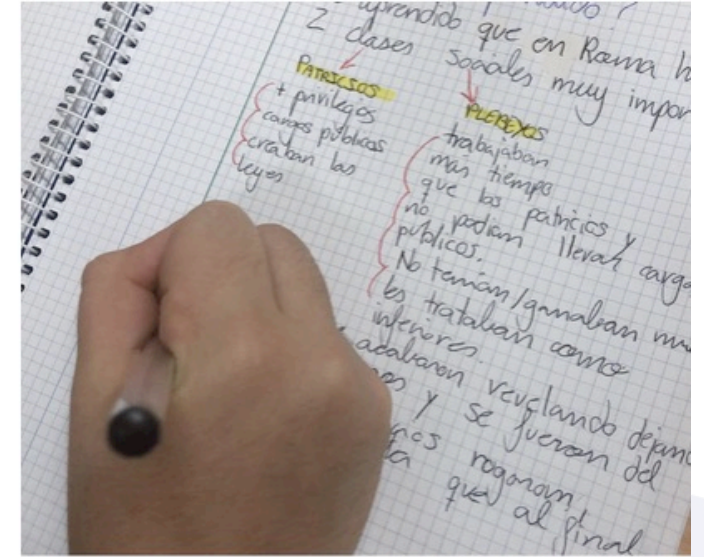 aprendido que en Roma
2 clases sociales muy impor
PATRICIOS
+ privilegios
cargos públicos
creaban las
leyes
PLEBEYOS
trabajaban
más tiempo
que los patricios y
no podían llevar cargo
públicos.
No tenían/ganaban mu
les trataban como
inferiores.
acabaron revelando dejand
y se fueron del
rogaron
que al final